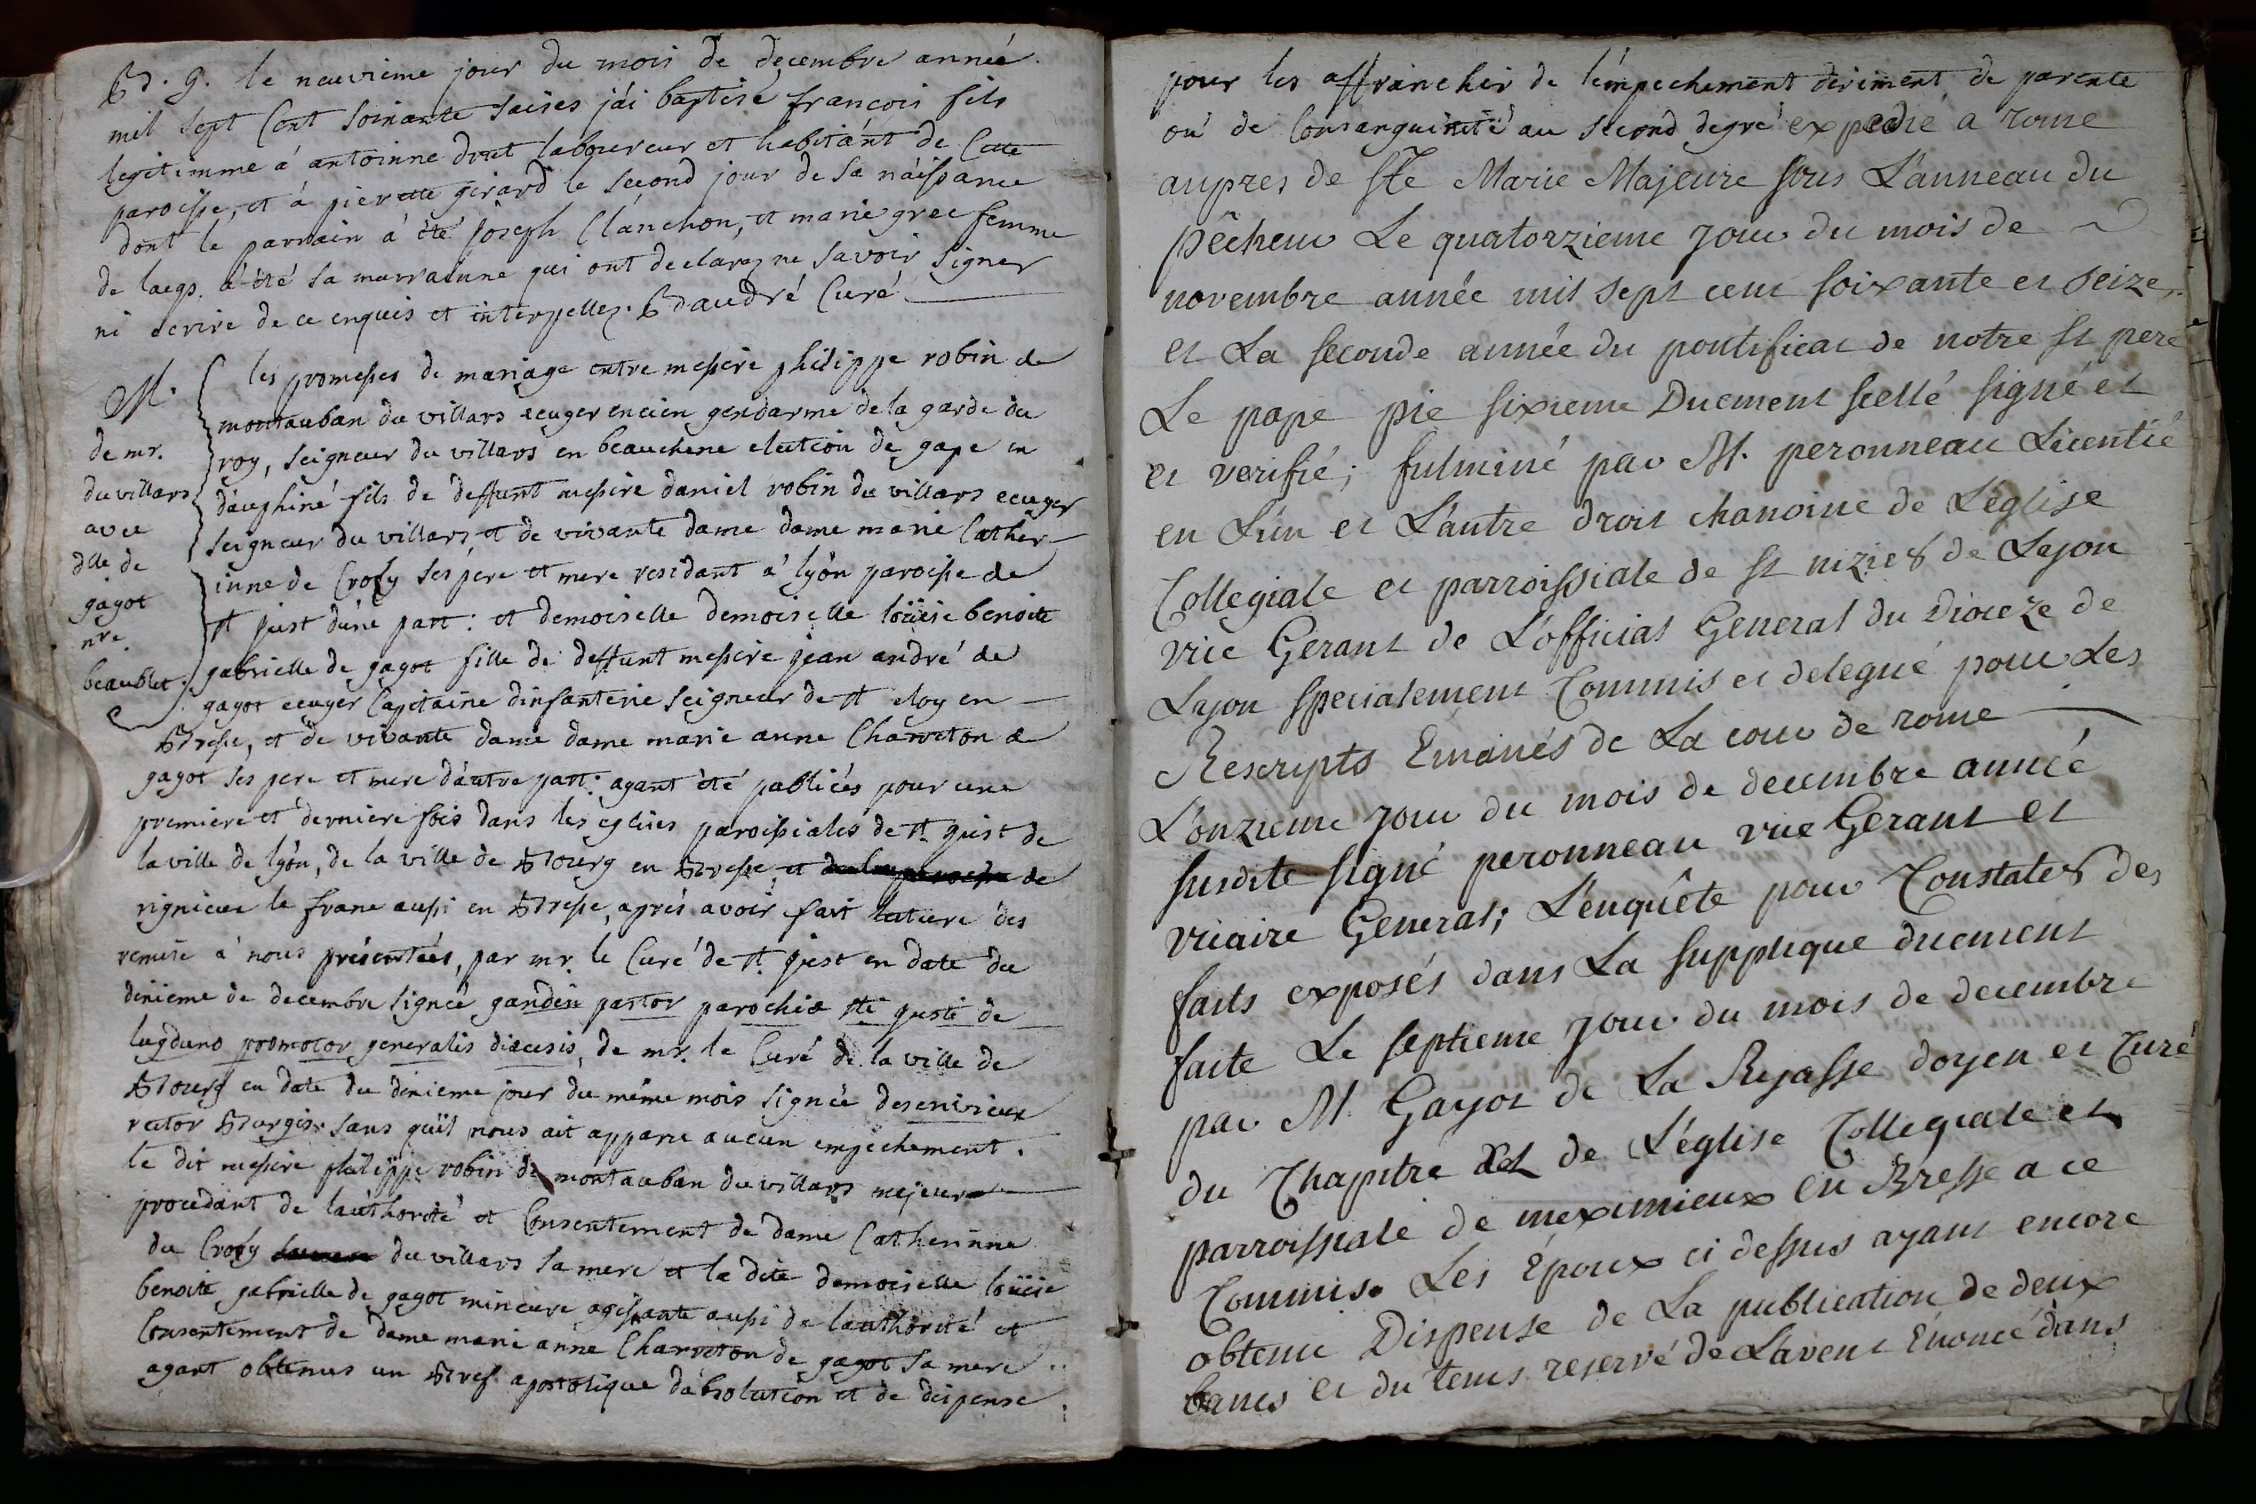 B. 9. le neuvieme jour du mois de decembre année
mil sept Cent soixante saises j'ai baptisé françois fils
legitimme à antoinne drut laboureur et habitant de Cette
paroisse, et à pierette girard le second jour de sa naissance
dont le parrain à été joseph Clanchon, et marie gree femme
de laegs. à été sa marrainne qui ont declarez ne savoir signer
ni ecrire de ce enquis et interpellez. Bdaudré Curé
M.
de mr.
duvillars
avec
dlle de
gayot
nre.
beaublet.
les promesses de mariage entre messire philippe robin de
montauban du villars ecuyer encien gendarme de la garde du
roy, seigneur du villars en beauchene election de gape en
dauphiné fils de deffunt messire daniel robin du villars ecuyer
seigneur du villars, et de vivante dame dame marie Cather-
inne de Crosy ses pere et mere residant à lyon paroisse de
st just d'une part: et demoiselle demoiselle loüise benoite
gabrielle de gayot fille de deffunt messire jean andré de
gayot ecuyer Capitaine dinfanterie seigneur de st eloy en
Bresse, et de vivante dame dame marie anne Charreton de
gayot ses pere et mere d'autre part: ayant été publiées pour une
premiere et derniere fois dans les eglises paroissiales de st. just de
la ville de lyon, de la ville de Bourg en Bresse, et de
rignieux le franc aussi en Bresse, aprés avoir fait lecture des
remise à nous présentées, par mr. le Curé de st. just en date du
dixieme de decembre signée gandin pastor parochiæ sti justi de
lugduno promotor generalis diæcesis, de mr. le Curé de la ville de
Bourg en date du dixieme jour du même mois signée desenivieux
rector Burgis sans qu'il nous ait apparu aucun empêchement.
le dit messire philippe robin de montauban du villars majeur
procedant de lauthorité et Consentement de dame Catherinne
du Crosy du villars sa mere et la dite demoiselle loüise
benoite gabrielle de gayot mineure agissante aussi de lauthorité et
Consentement de dame marie anne Charreton de gayot sa mere
ayant obtenus un Bref apostolique dabsolution et de dispense
pour les affranchir de l'émpechement diriment de parenté
où de Consanguinité au second degré expedié a rome
aupres de Ste Marie Majeure sous L'anneau du
pêcheur Le quatorzieme jour du mois de
novembre année mil sept cent soixante et seize,
et La seconde année du pontificat de notre st pere
Le pape pie sixieme Duement scellé signé et
et verifié; fulminé par M. peronneau Licentié
en L'un et L'autre droit chanoine de L'église
Collegiale et parroissiale de st nizier de Lyon
vice Gerant de L'official General du Dioceze de
Lyon specialement Commis et delegué pour Les
Rescripts Emanés de La cour de rome
L'onzieme jour du mois de decembre année
susdite signé peronneau vice Gerant et
vicaire General; L'enquête pour Constater des
faits exposés dans La supplique duement
faite Le septieme jour du mois de decembre
par M Gayot de La Rejasse doyen et Curé
du Chapitre de L'église Collegiale et
parroissiale de meximieux en Bresse a ce
Commis. Les Epoux ci dessus ayant encore
obtenu Dispense de La publication de deux
bancs et du tems reservé de L'avent Enoncé dans